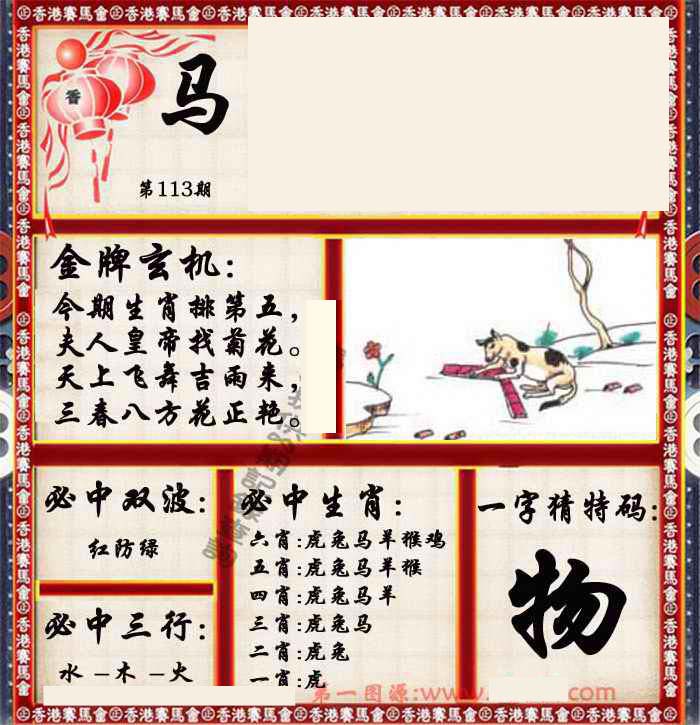 香港賽馬會
香
马
第113期
金牌玄机:
今期生肖排第五,
夫人皇帝找菊花。
天上飞舞吉雨来,
三春八方花正艳。
必中双波:
红防绿
必中三行:
水－木－火
必中生肖:
六肖:虎兔马羊猴鸡
五肖:虎兔马羊猴
四肖:虎兔马羊
三肖:虎兔马
二肖:虎兔
一肖:虎
一字猜特码:
物
第一图源:www. com